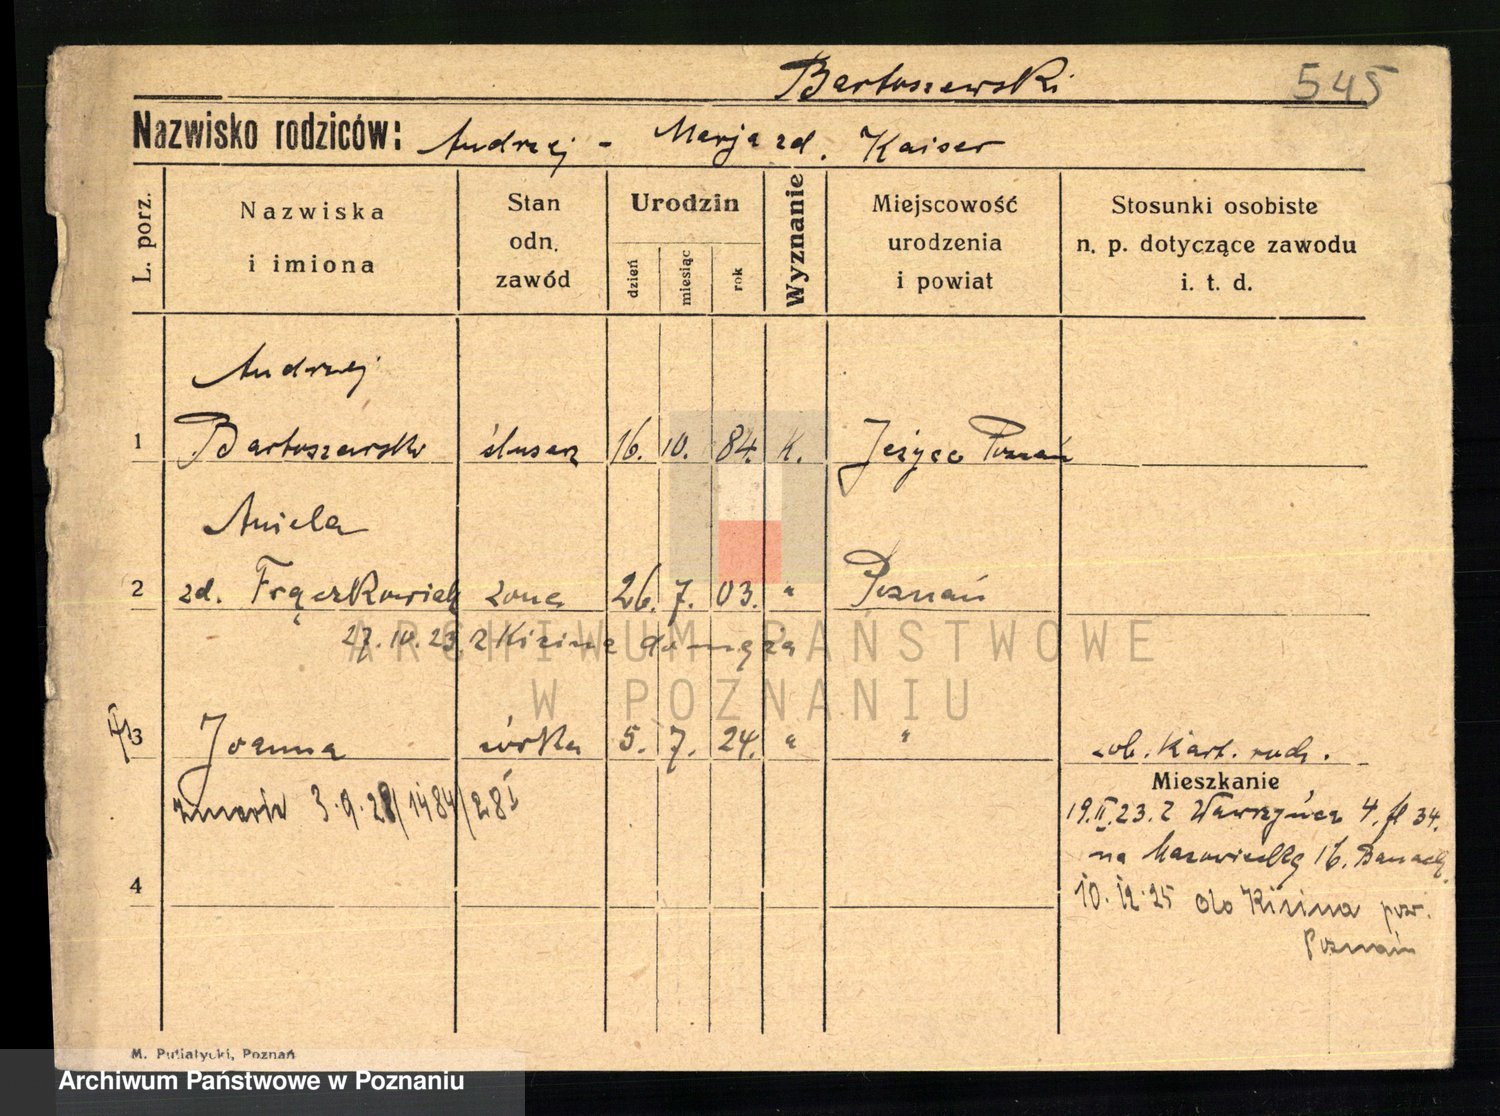 Bartoszewski 545
Nazwisko rodziców: Andrzej - Marja zd. Kaiser
L. porz.
Nazwiska
i imiona
Stan
odn.
zawód
Urodzin
dzień
miesiąc
rok
Wyznanie
Miejscowość
urodzenia
i powiat
Stosunki osobiste
n. p. dotyczące zawodu
i. t. d.
Andrzej
1 Bartoszewski ślusarz 16. 10. 84. K. Jeżyce Poznań
Aniela
2 zd. Frąckowiak żona 26. 7. 03. " Poznań
27.10.23 z Kizina do męża
ARCHIWUM PAŃSTWOWE
W POZNANIU
3 Joanna córka 5. 7. 24. " "
zob. Kart. rodz.
zmarła 3.9.28/1484/28
Mieszkanie
19.II.23. z Wawrzyńca 4. 34.
na Mazowiecką 16.
4
10.12.25 do Kizina pow.
Poznań
M. Putiatycki, Poznań
Archiwum Państwowe w Poznaniu